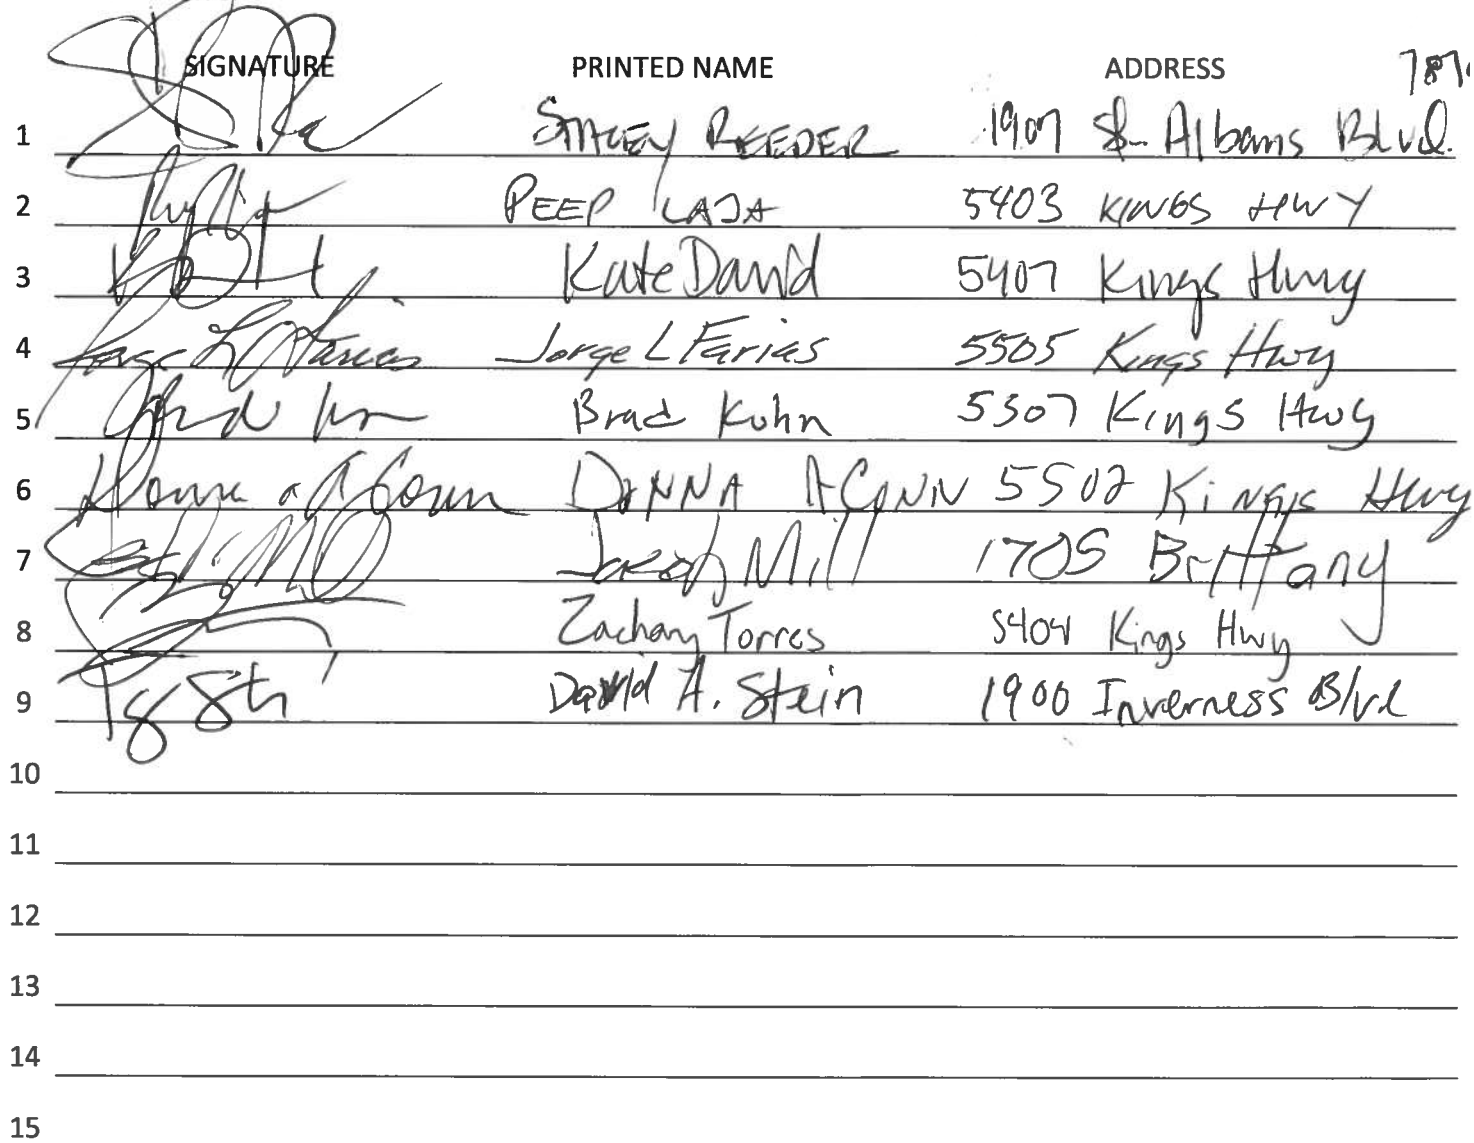 SIGNATURE PRINTED NAME ADDRESS
1 STACEY REEDER 1907 St. Albans Blvd.
2 PEEP LAJA 5403 KINGS HWY
3 Kate David 5407 Kings Hwy
4 Jorge L Farias Jorge L Farias 5505 Kings Hwy
5 Brad Kuhn 5307 Kings Hwy
6 Donna A Conn DONNA A CONN 5502 Kings Hwy
7 Jacob Mill 1705 Brittany
8 Zachary Torres 5404 Kings Hwy
9 David A. Stein 1900 Inverness Blvd
10
11
12
13
14
15